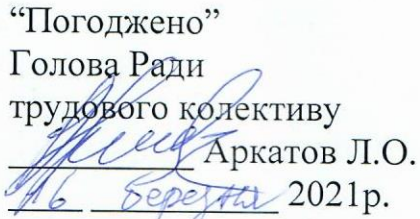 “Погоджено”
Голова Ради
трудового колективу
____________ Аркатов Л.О.
16 березня 2021р.